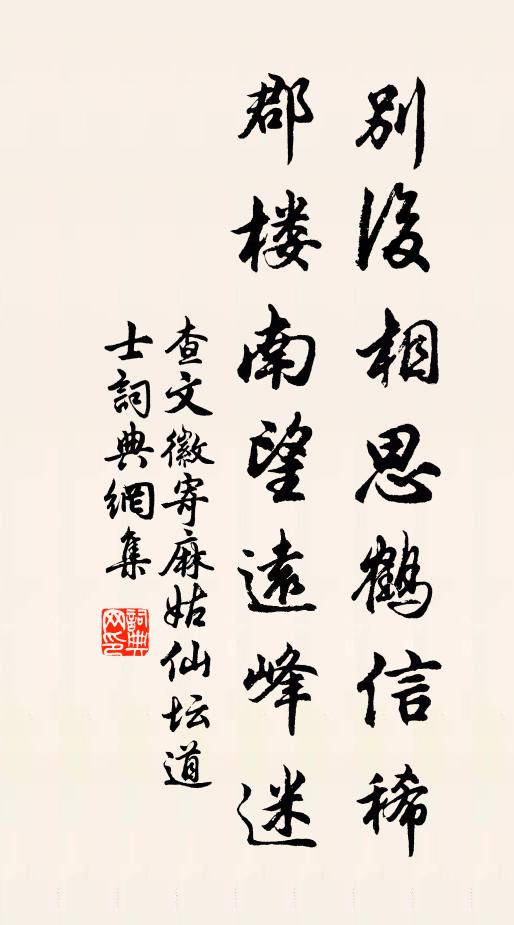 別後相思鶴信稀
郡楼南望遠峰迷
查文徽寄麻姑仙坛道
士詞典網集
詞典网印